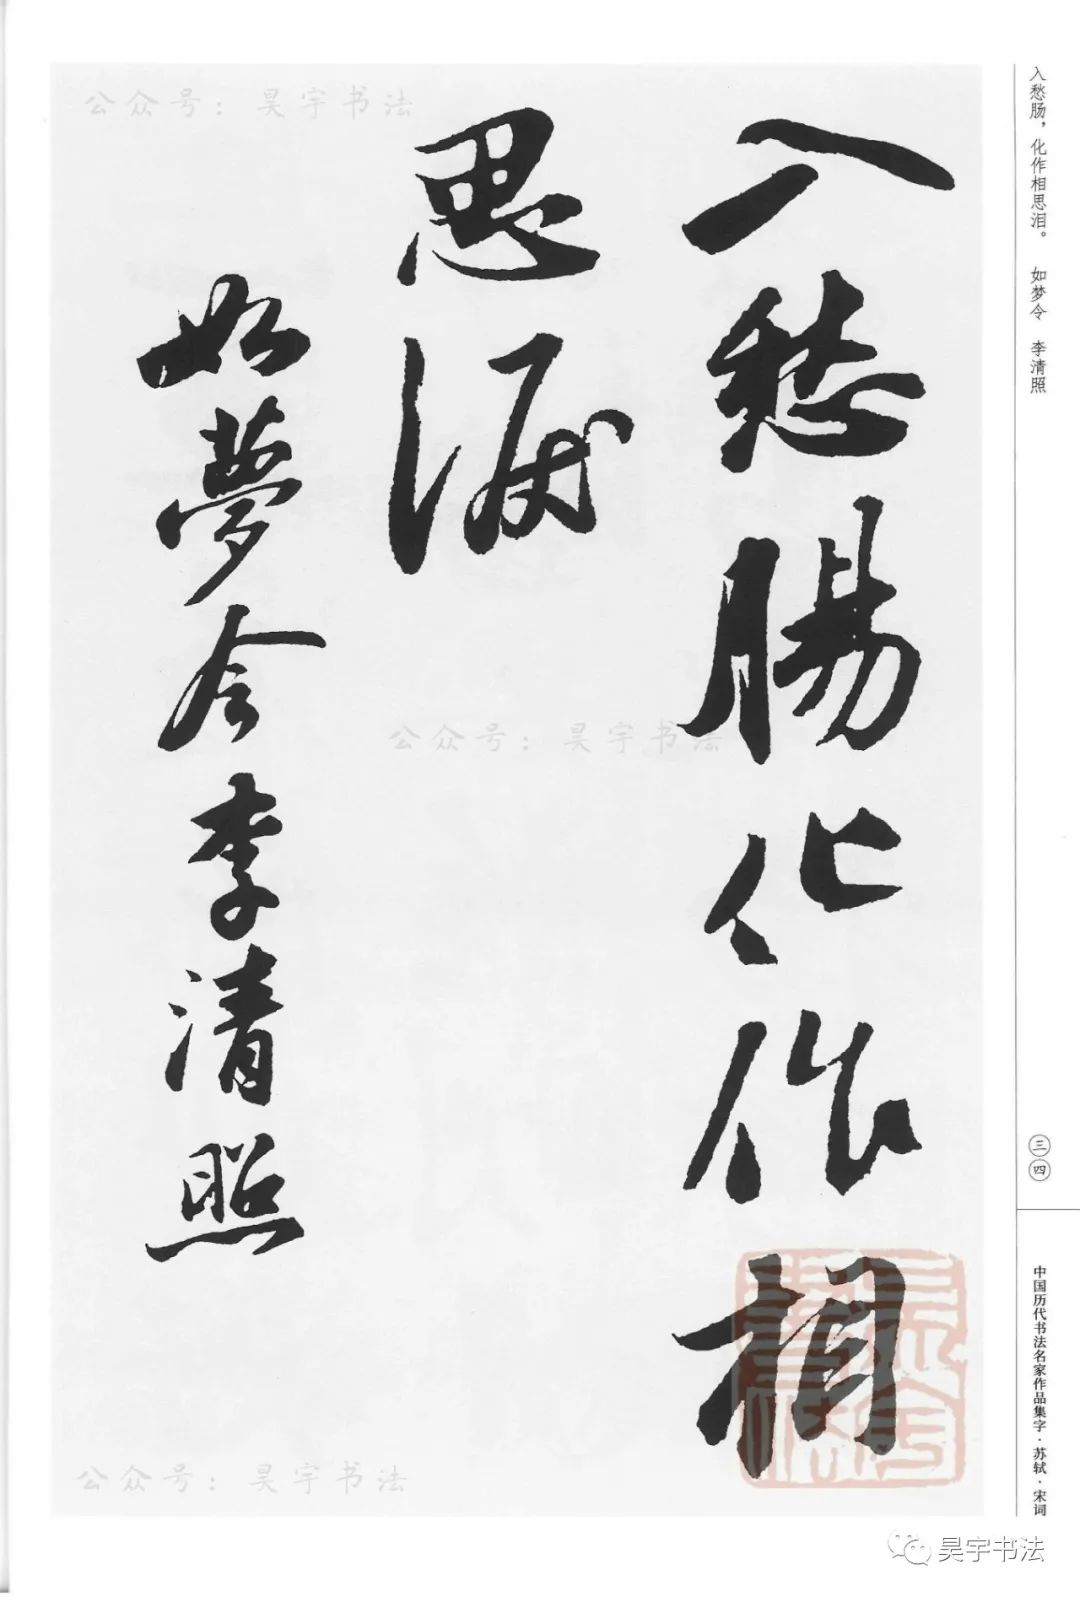 入愁肠，化作相思泪。 如梦令 李清照
三四
中国历代书法名家作品集字·苏轼·宋词
入愁腸化作相
思淚
如夢令李清照
公众号：昊宇书法
公众号：昊宇书法
公众号：昊宇书法
昊宇书法